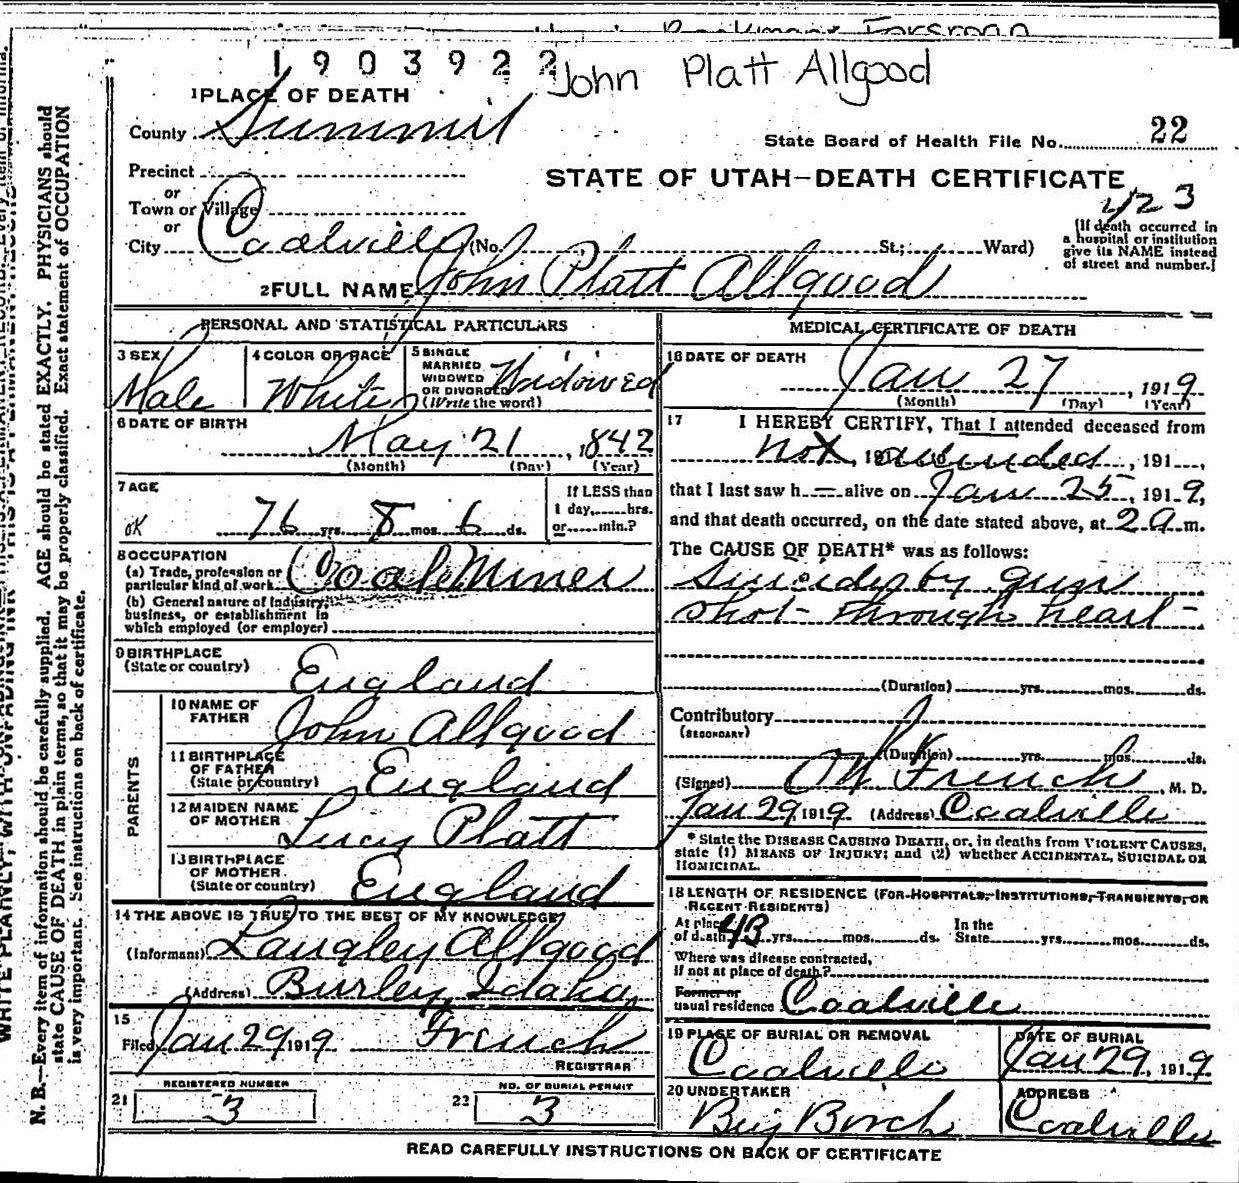 1903922
John Platt Allgood
1 PLACE OF DEATH
County Summit
State Board of Health File No. 22
Precinct
or
Town or Village
or
City Coalville (No. St.; Ward)
STATE OF UTAH—DEATH CERTIFICATE
423
[If death occurred in
a hospital or institution
give its NAME instead
of street and number.]
2 FULL NAME John Platt Allgood
PERSONAL AND STATISTICAL PARTICULARS
3 SEX Male
4 COLOR OR RACE White
5 SINGLE
MARRIED
WIDOWED
OR DIVORCED
(Write the word) Widowed
6 DATE OF BIRTH
May 21, 1842
(Month) (Day) (Year)
7 AGE
OK 76 yrs. 8 mos. 6 ds.
If LESS than
1 day, hrs.
or min.?
8 OCCUPATION
(a) Trade, profession or
particular kind of work Coal Miner
(b) General nature of Industry,
business, or establishment in
which employed (or employer)
9 BIRTHPLACE
(State or country) England
PARENTS
10 NAME OF
FATHER John Allgood
11 BIRTHPLACE
OF FATHER
(State or country) England
12 MAIDEN NAME
OF MOTHER Lucy Platt
13 BIRTHPLACE
OF MOTHER
(State or country) England
14 THE ABOVE IS TRUE TO THE BEST OF MY KNOWLEDGE
(Informant) Langley Allgood
(Address) Burley, Idaho
15
Filed Jan 29 1919 French
REGISTRAR
REGISTERED NUMBER
21 3
NO. OF BURIAL PERMIT
22 3
MEDICAL CERTIFICATE OF DEATH
16 DATE OF DEATH
Jan 27, 1919
(Month) (Day) (Year)
17 I HEREBY CERTIFY, That I attended deceased from
not, 191 attended, 191,
that I last saw h alive on Jan 25, 1919,
and that death occurred, on the date stated above, at 2 a. m.
The CAUSE OF DEATH* was as follows:
Suicide by gun
shot through heart
(Duration) yrs. mos. ds.
Contributory
(SECONDARY)
(Duration) yrs. mos. ds.
(Signed) French, M. D.
Jan 29, 1919 (Address) Coalville
* State the DISEASE CAUSING DEATH, or, in deaths from VIOLENT CAUSES,
state (1) MEANS OF INJURY; and (2) whether ACCIDENTAL, SUICIDAL OR
HOMICIDAL.
18 LENGTH OF RESIDENCE (FOR HOSPITALS, INSTITUTIONS, TRANSIENTS, OR
RECENT RESIDENTS)
At place
of death 43 yrs. mos. ds.
In the
State yrs. mos. ds.
Where was disease contracted,
if not at place of death?
Former or
usual residence Coalville
19 PLACE OF BURIAL OR REMOVAL
Coalville
DATE OF BURIAL
Jan 29, 1919
20 UNDERTAKER
ADDRESS
Coalville
READ CAREFULLY INSTRUCTIONS ON BACK OF CERTIFICATE
N. B.—Every item of information should be carefully supplied. AGE should be stated EXACTLY. PHYSICIANS should
state CAUSE OF DEATH in plain terms, so that it may be properly classified. Exact statement of OCCUPATION
is very important. See instructions on back of certificate.